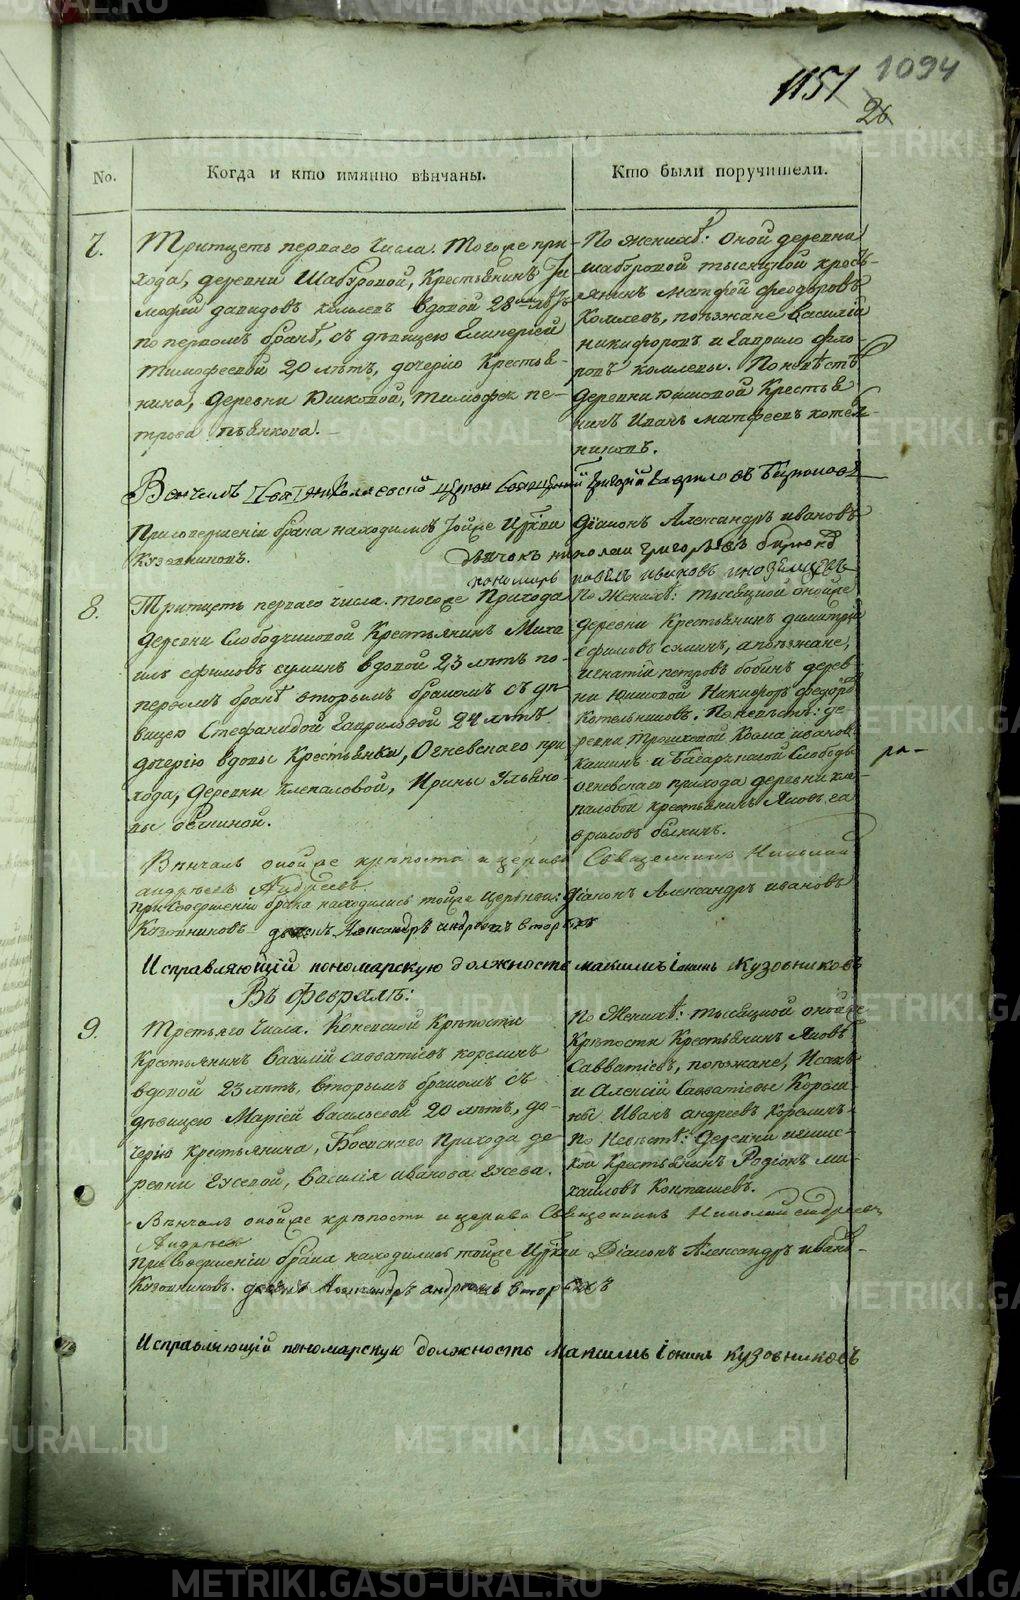 1151 1094
26
No. Когда и кто имянно вѣнчаны. Кто были поручители.
7. Тритцеть перваго числа. Тогоже при-
хода, деревни Шабуровой, Крестьянинъ Ти
мофей давидовъ комлевъ вдовой 28
по первомъ бракѣ, съ дѣвицею
тимофеевой 20 лѣтъ, дочерію Крестья-
нина, деревни Юшковой, тимофея пе-
трова пьянкова.
По женихѣ: Оной деревни
шабуровой тысяцкой крест-
янинъ матфей феодоровъ
Комлевъ, поѣзжане василій
никифоровъ и гаврило фло-
ровъ комлевы. По невѣстѣ
деревни Юшковой Крестья
нинъ Иванъ матфеевъ котел-
никовъ.
Вѣнчалъ николаевской церкви Священникъ Григорій гавриловъ Бирюковъ
При совершеніи брака находились тойже Церкви Діаконъ Александръ ивановъ
Кузовниковъ. дьячокъ николаи григорьевъ бирюковъ
пономарь павелъ ивановъ иноземцевъ
8. Тритцеть перваго числа. тогоже Прихода
деревни Слободчиковой Крестьянинъ Миха
илъ ефимовъ сулинъ вдовой 23 лѣтъ по-
первомъ бракѣ вторымъ бракомъ съ дѣ-
вицею Стефанидой Гавриловой 24 лѣтъ
дочерію вдовы Крестьянки, Огневскаго при
хода, деревни клепаловой, Ирины Ульяно-
вы овчиной.
По Женихѣ: тысяцкой онойже
деревни Крестьянинъ димитрій
ефимовъ сулинъ, а поѣзжане,
игнатій петровъ бобинъ дерев-
ни Юшковой Никифоръ федоровъ
Котельниковъ. По невѣстѣ: де-
ревни Трошковой Козма ивановъ
кашинъ и Багаряцкой Слободы
огневскаго прихода деревни кле-
паловой крестьянинъ Яковъ га
вриловъ балкинъ.
Вѣнчалъ онойже крѣпости и церкви Священникъ Николай
андрѣевъ Андреевъ
При совершеніи брака находились тойже Церкви: Діаконъ Александръ ивановъ
Кузовниковъ дьячекъ Александръ андреевъ вторыхъ
Исправляющій пономарскую должность максимъ іонинъ Кузовниковъ
Въ Февралѣ:
9. Третьяго числа. Коневской Крѣпости
Крестьянинъ Василій савватіевъ корелинъ
вдовой 23 лѣтъ, вторымъ бракомъ съ
дѣвицею Маріей васильевой 20 лѣтъ, до-
черію крестьянина, Боевскаго Прихода де-
ревни Ежевой, Василія иванова Ежева.
По Женихѣ: тысяцкой онойже
Крѣпости Крестьянинъ Яковъ
Савватіевъ, поѣзжане, Исакъ
и Алексій Савватіевы Корели-
ны Иванъ андреевъ Корелинъ.
По Невѣстѣ: деревни
кои Крестьянинъ Родіонъ ми-
хайловъ Копташевъ.
Вѣнчалъ онойже крѣпости и церкви Священникъ Николай андреевъ
Андреевъ
При совершеніи брака находились тойже Церкви Діаконъ Александръ ивано-
Кузовниковъ. дьячекъ Александръ андреевъ вторыхъ
Исправляющій пономарскую должность Максимъ іонинъ кузовниковъ
METRIKI.GASO-URAL.RU